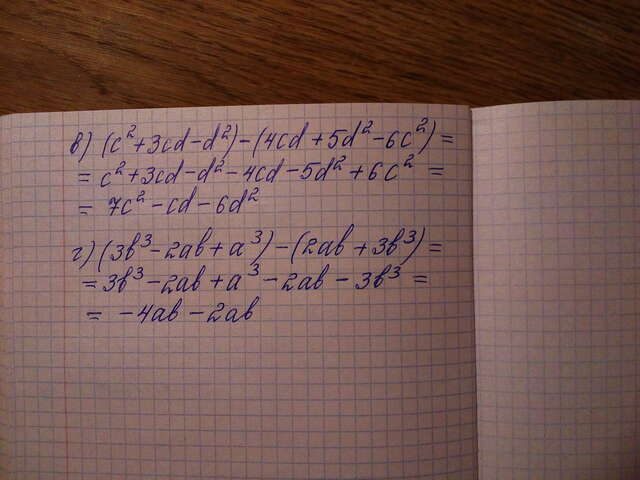 в) (c²+3cd-d²)-(4cd+5d²-6c²)=
= c²+3cd-d²-4cd-5d²+6c² =
= 7c²-cd-6d²
г) (3b³-2ab+a³)-(2ab+3b³)=
=3b³-2ab+a³-2ab-3b³=
= -4ab-2ab